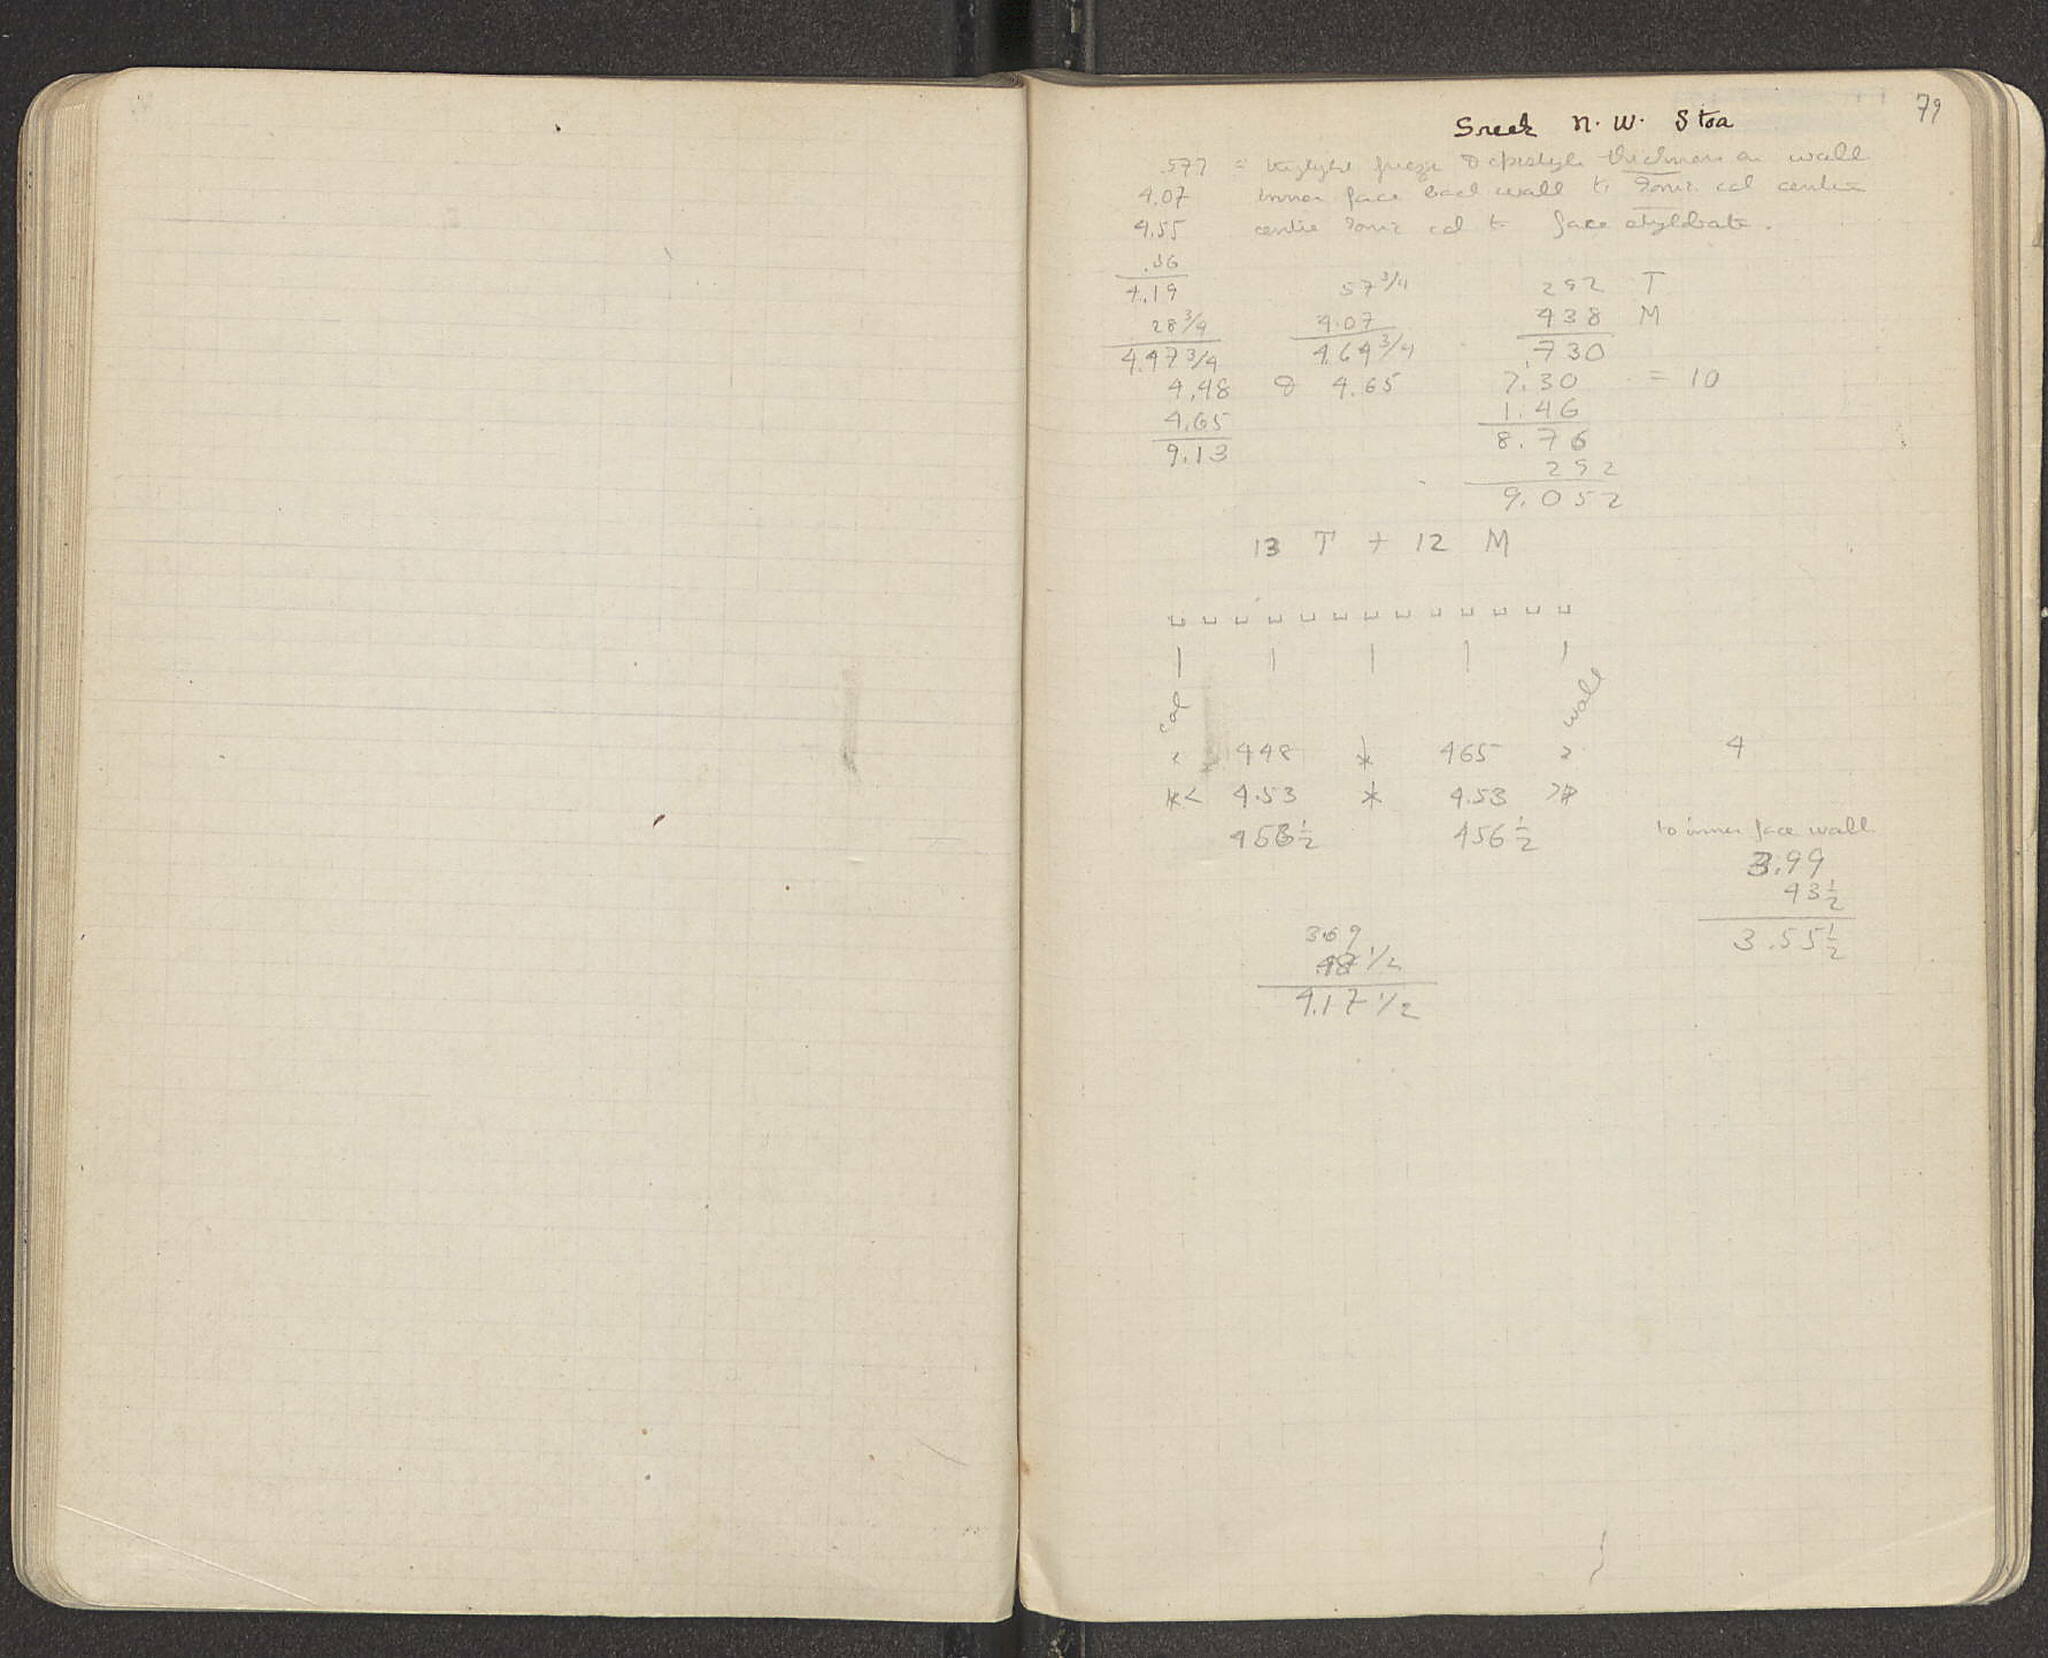 79
Greek N. W. Stoa
.577 = triglyph frieze & epistyle thickness on wall
4.07 inner face back wall to Ionic col centre
4.55 centre Ionic col to face stylobate.
.36
4.19 57 3/4 292 T
28 3/4 4.07 438 M
4.47 3/4 4.64 3/4 .730
4.48 & 4.65 7.30 = 10
4.65 1.46
9.13 8.76
292
9.052
13 T + 12 M
col wall
< 448 * 465 > 4
*< 4.53 * 4.53 >*
456 1/2 456 1/2 to inner face wall
3.99
43 1/2
3.69 3.55 1/2
48 1/2
4.17 1/2